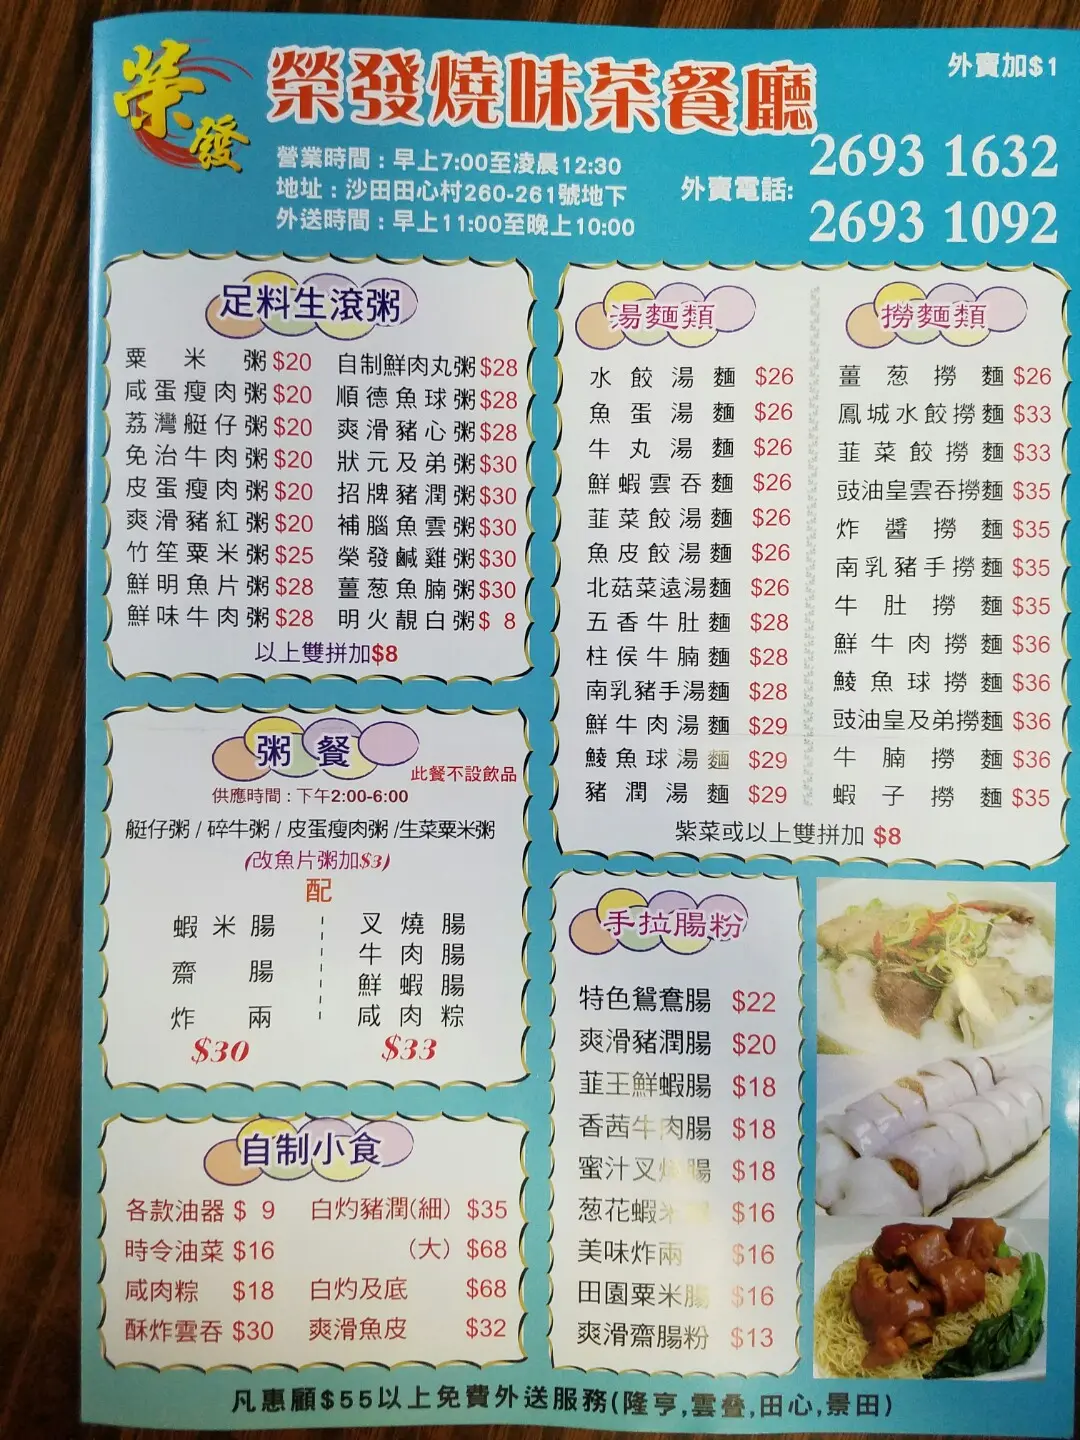 榮發
榮發燒味茶餐廳
外賣加$1
營業時間：早上7:00至凌晨12:30
地址：沙田田心村260-261號地下
外送時間：早上11:00至晚上10:00
外賣電話:
2693 1632
2693 1092
足料生滾粥
粟米粥 $20
咸蛋瘦肉粥 $20
荔灣艇仔粥 $20
免治牛肉粥 $20
皮蛋瘦肉粥 $20
爽滑豬紅粥 $20
竹笙粟米粥 $25
鮮明魚片粥 $28
鮮味牛肉粥 $28
自制鮮肉丸粥 $28
順德魚球粥 $28
爽滑豬心粥 $28
狀元及弟粥 $30
招牌豬潤粥 $30
補腦魚雲粥 $30
榮發鹹雞粥 $30
薑葱魚腩粥 $30
明火靚白粥 $ 8
以上雙拼加$8
粥餐
此餐不設飲品
供應時間：下午2:00-6:00
艇仔粥 / 碎牛粥 / 皮蛋瘦肉粥 /生菜粟米粥
(改魚片粥加$3)
配
蝦米腸
齋腸
炸兩
$30
叉燒腸
牛肉腸
鮮蝦腸
咸肉粽
$33
自制小食
各款油器 $ 9
時令油菜 $16
咸肉粽 $18
酥炸雲吞 $30
白灼豬潤(細) $35
(大) $68
白灼及底 $68
爽滑魚皮 $32
湯麵類
水餃湯麵 $26
魚蛋湯麵 $26
牛丸湯麵 $26
鮮蝦雲吞麵 $26
韮菜餃湯麵 $26
魚皮餃湯麵 $26
北菇菜遠湯麵 $26
五香牛肚麵 $28
柱侯牛腩麵 $28
南乳豬手湯麵 $28
鮮牛肉湯麵 $29
鯪魚球湯麵 $29
豬潤湯麵 $29
撈麵類
薑葱撈麵 $26
鳳城水餃撈麵 $33
韮菜餃撈麵 $33
豉油皇雲吞撈麵 $35
炸醬撈麵 $35
南乳豬手撈麵 $35
牛肚撈麵 $35
鮮牛肉撈麵 $36
鯪魚球撈麵 $36
豉油皇及弟撈麵 $36
牛腩撈麵 $36
蝦子撈麵 $35
紫菜或以上雙拼加 $8
手拉腸粉
特色鴛鴦腸 $22
爽滑豬潤腸 $20
韮王鮮蝦腸 $18
香茜牛肉腸 $18
蜜汁叉燒腸 $18
葱花蝦米 $16
美味炸兩 $16
田園粟米腸 $16
爽滑齋腸粉 $13
凡惠顧$55以上免費外送服務(隆亨,雲叠,田心,景田)